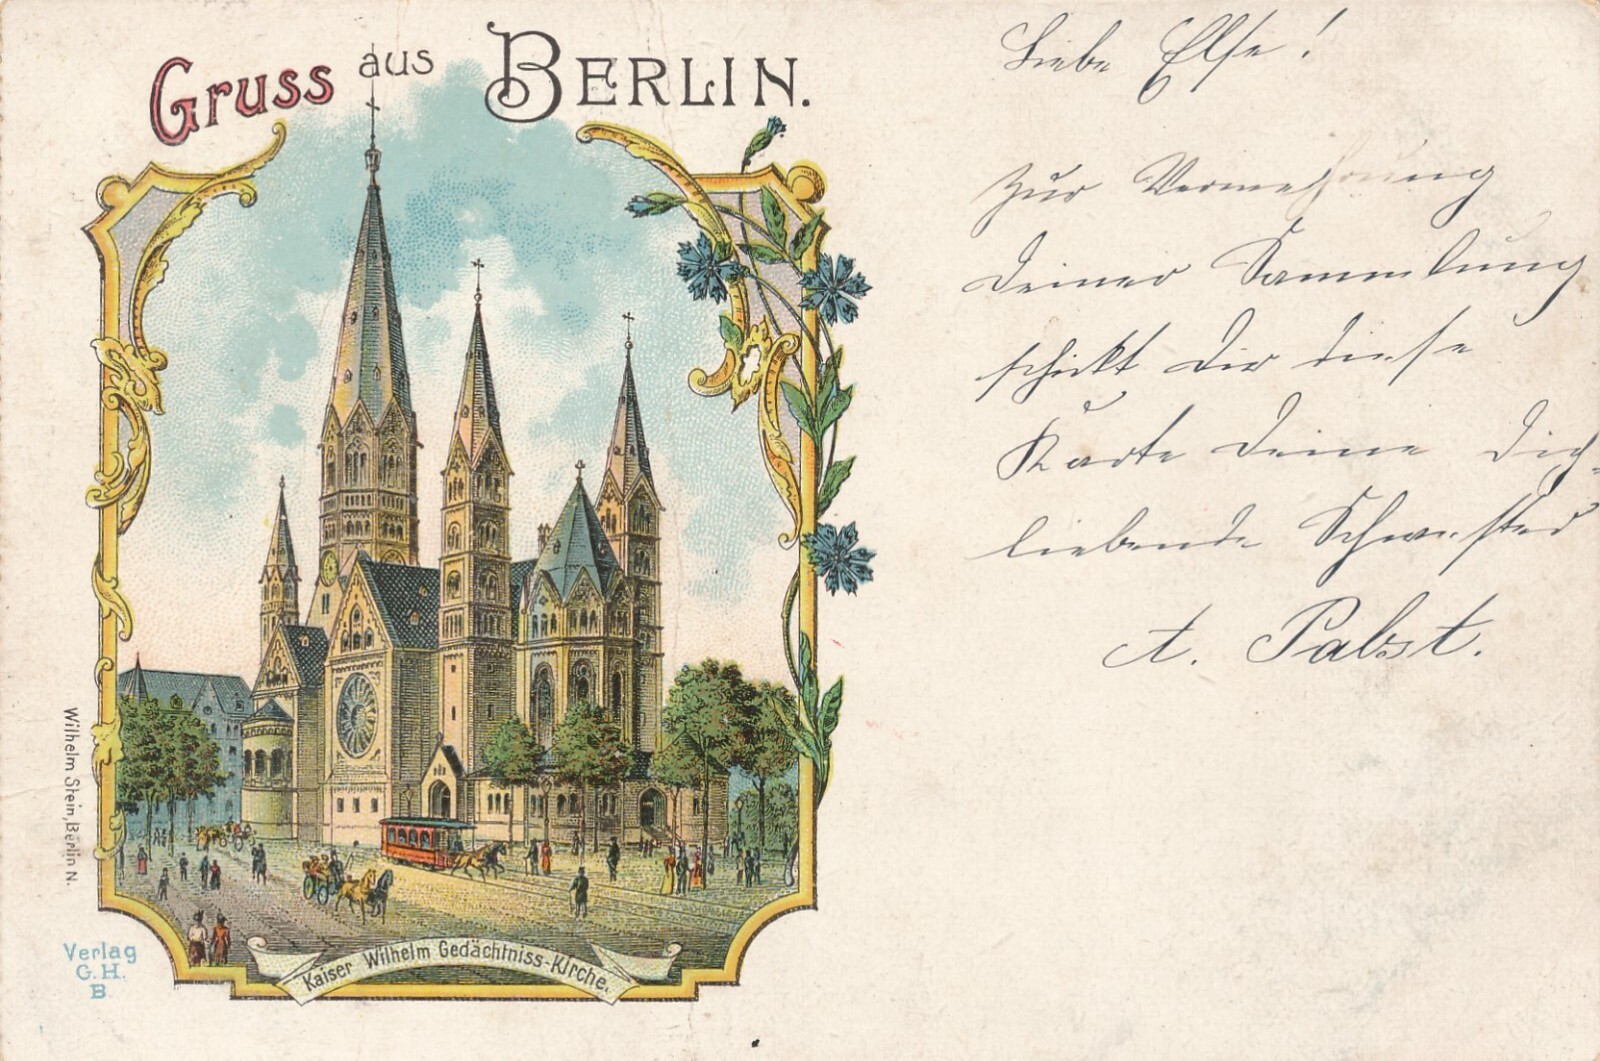 Gruss aus BERLIN.
Liebe Else!
Zur Vermehrung
Deiner Sammlung
schickt Dir diese
Karte Deine Dich
liebende Schwester
A. Pabst.
Wilhelm Stein, Berlin N.
Verlag
G. H.
B
Kaiser Wilhelm Gedächtniss-Kirche.